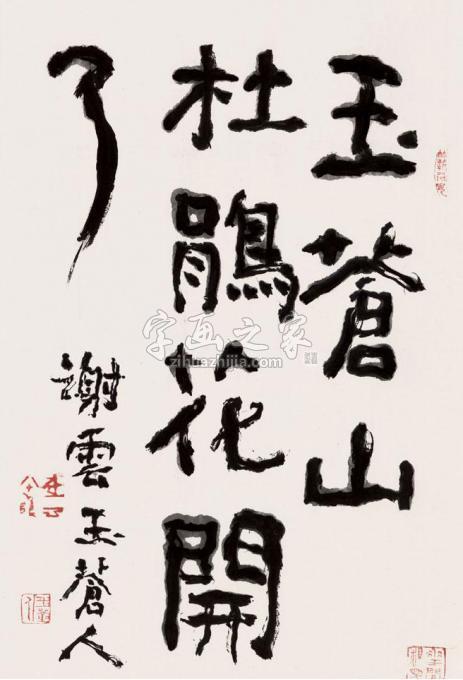 玉蒼山
杜鵑花開
了
謝雲玉蒼人
字画之家
zihuazhijia.com